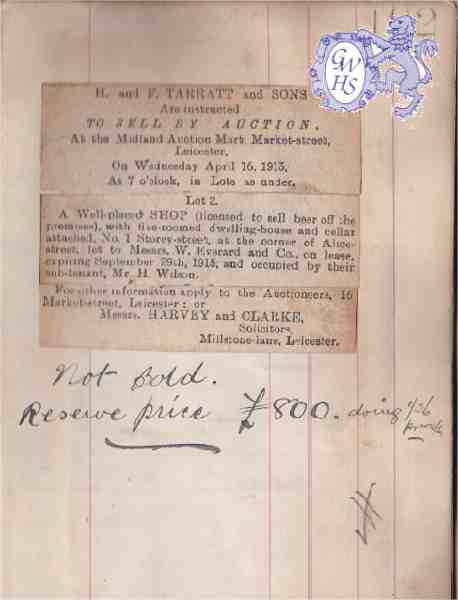 GWHS
H. and F. TARRATT and SONS
Are instructed
TO SELL BY AUCTION,
At the Midland Auction Mark Market-street,
Leicester,
On Wednesday April 16, 1913,
As 7 o'clock, in Lots as under.
Lot 2.
A Well-placed SHOP (licensed to sell beer off the
premises), with five-roomed dwelling-house and cellar
attached, No. 1 Storey-street, at the corner of Alice-
street, let to Messrs. W. Everard and Co., on lease,
expiring September 29th, 1915, and occupied by their
sub-tenant, Mr. H. Wilson.
For other information apply to the Auctioneers, 16
Market-street, Leicester; or
Messrs. HARVEY and CLARKE,
Solicitors,
Millstone-lane, Leicester.
Not Sold.
Reserve price £800. doing